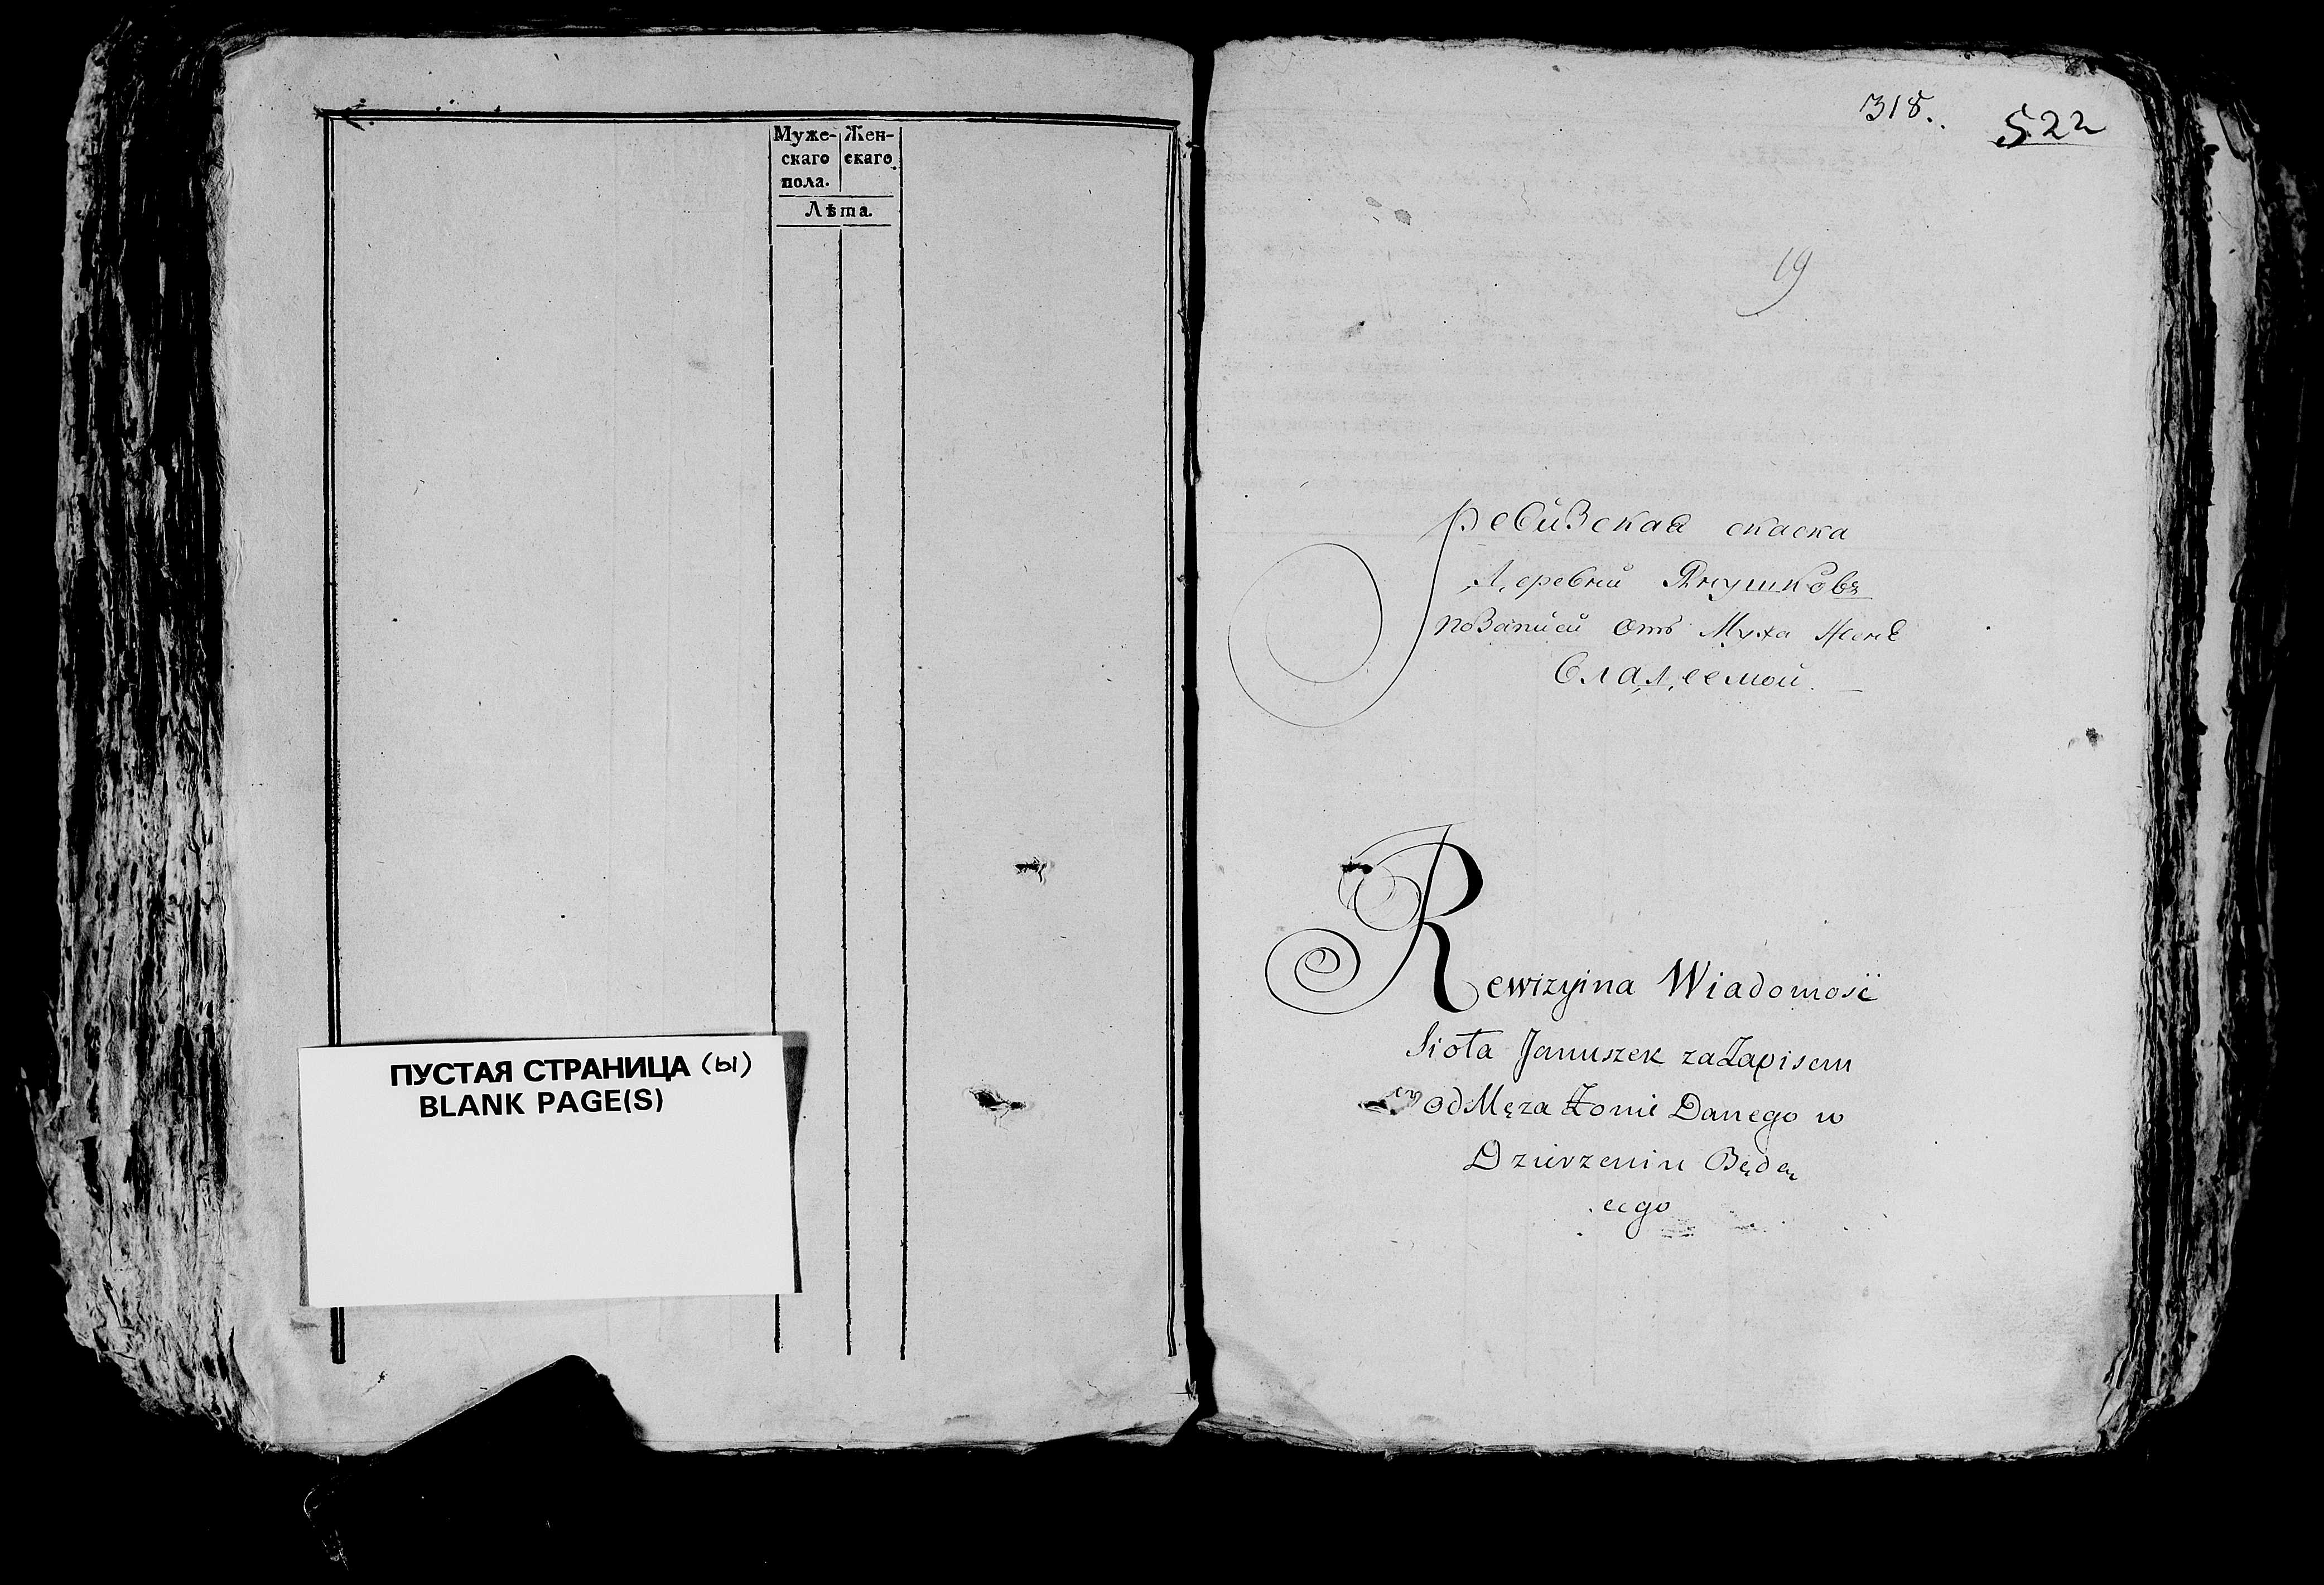 Муже- Жен-
скаго скаго
пола.
Лѣта.
ПУСТАЯ СТРАНИЦА (ы)
BLANK PAGE(S)
318.
522
19
Ревизская скаска
Деревни Янушковъ
позаписи отъ Мужа Женѣ
владеемой.
Rewizyina Wiadomość
Sioła Januszek za Zapisem
od Męża Żonie Danego w
Dzierzeniu Będą
cego